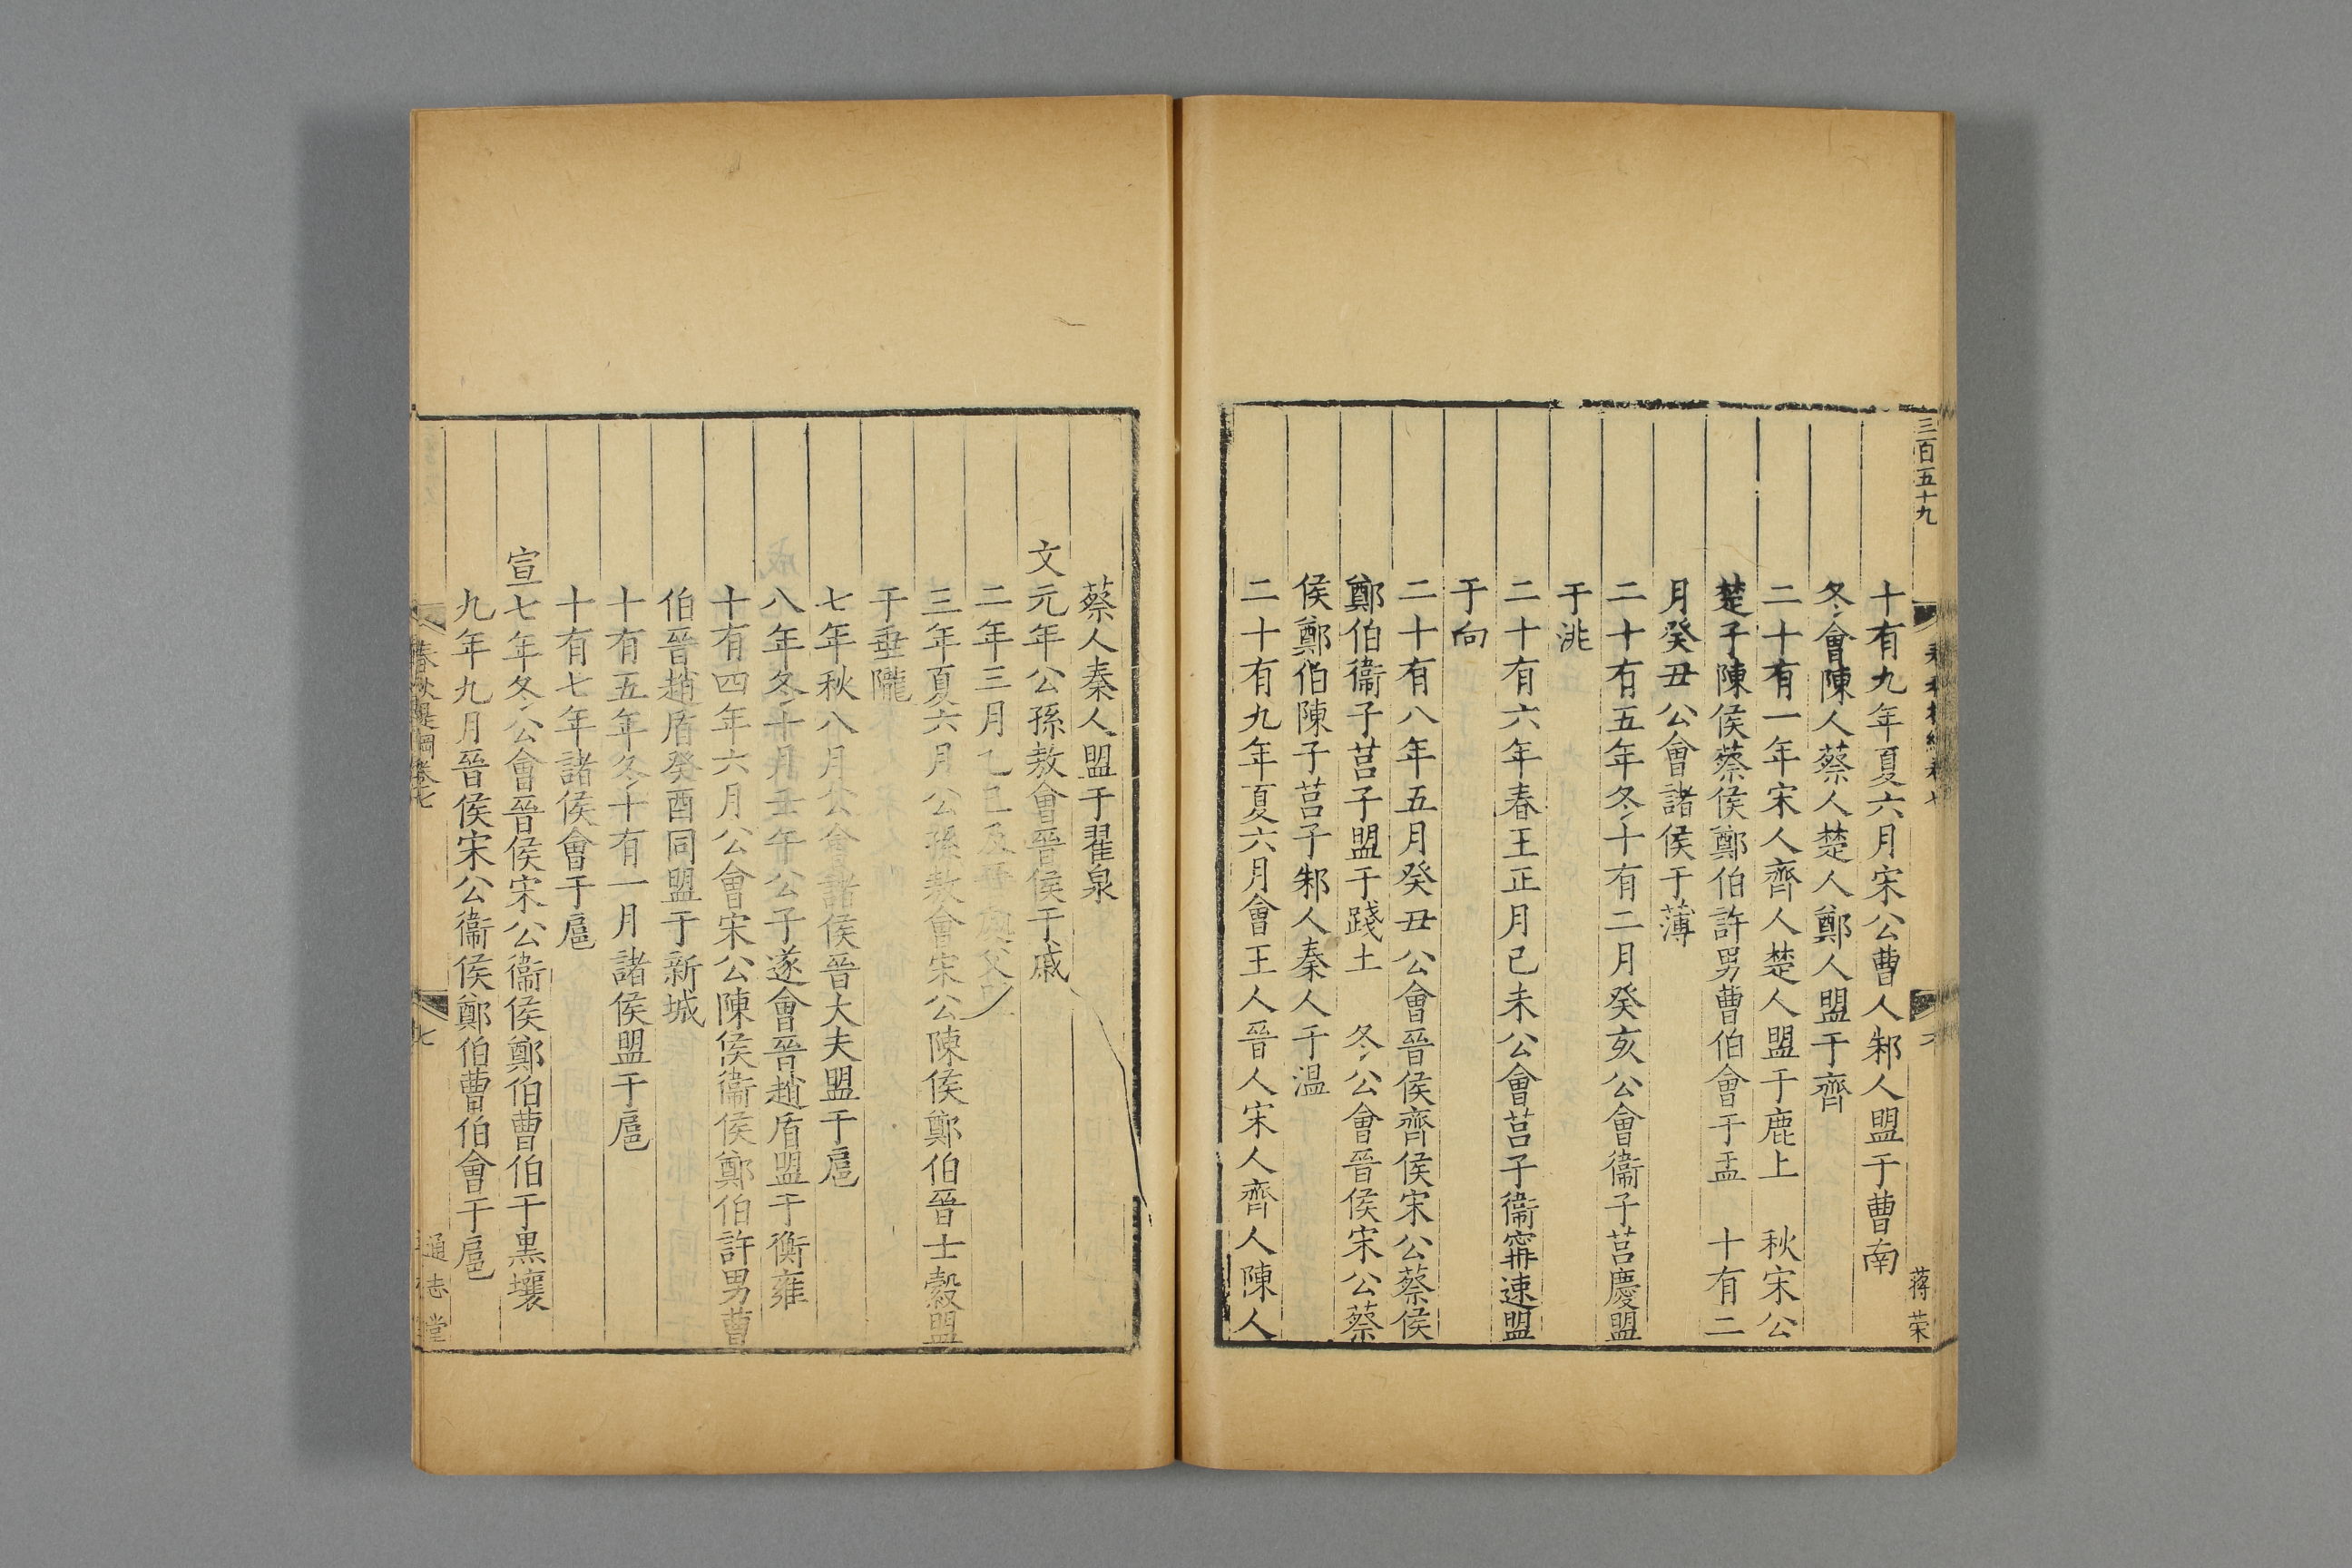 三百五十九
蒋荣
十有九年夏六月宋公曹人邾人盟于曹南
冬會陳人蔡人楚人鄭人盟于齊
二十有一年宋人齊人楚人盟于鹿上　秋宋公
楚子陳侯蔡侯鄭伯許男曹伯會于盂　十有二
月癸丑公會諸侯于薄
二十有五年冬十有二月癸亥公會衞子莒慶盟
于洮
二十有六年春王正月已未公會莒子衞甯速盟
于向
二十有八年五月癸丑公會晉侯齊侯宋公蔡侯
鄭伯衞子莒子盟于踐土　冬公會晉侯宋公蔡
侯鄭伯陳子莒子邾人秦人于溫
二十有九年夏六月會王人晉人宋人齊人陳人
蔡人秦人盟于翟泉
文元年公孫敖會晉侯于戚
二年三月乙巳及晉處父盟
三年夏六月公孫敖會宋公陳侯鄭伯晉士縠盟
于垂隴
七年秋八月公會諸侯晉大夫盟于扈
八年冬十月壬午公子遂會晉趙盾盟于衡雍
十有四年六月公會宋公陳侯衞侯鄭伯許男曹
伯晉趙盾癸酉同盟于新城
十有五年冬十有一月諸侯盟于扈
十有七年諸侯會于扈
宣七年冬公會晉侯宋公衞侯鄭伯曹伯于黒壤
九年九月晉侯宋公衞侯鄭伯曹伯會于扈
春秋提綱卷七
七
通志堂